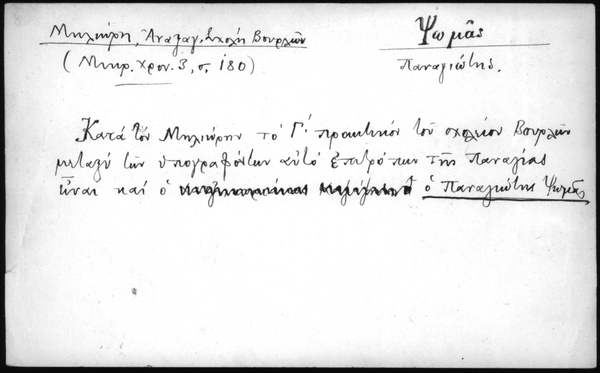 Μηλιώρη, Ἀναξαγ. Σχολή Βουρλῶν
(Μικρ. Χρον. 3, σ. 180)
Ψωμᾶς
Παναγιώτης.
Κατά τόν Μηλιώρην τό Γ' πρακτικόν τοῦ σχολείου Βουρλῶν
μεταξύ τῶν ὑπογραφόντων αὐτό ἐπιτρόπων τῆς Παναγίας
εἶναι καί ὁ ὁ Παναγιώτης Ψωμᾶς